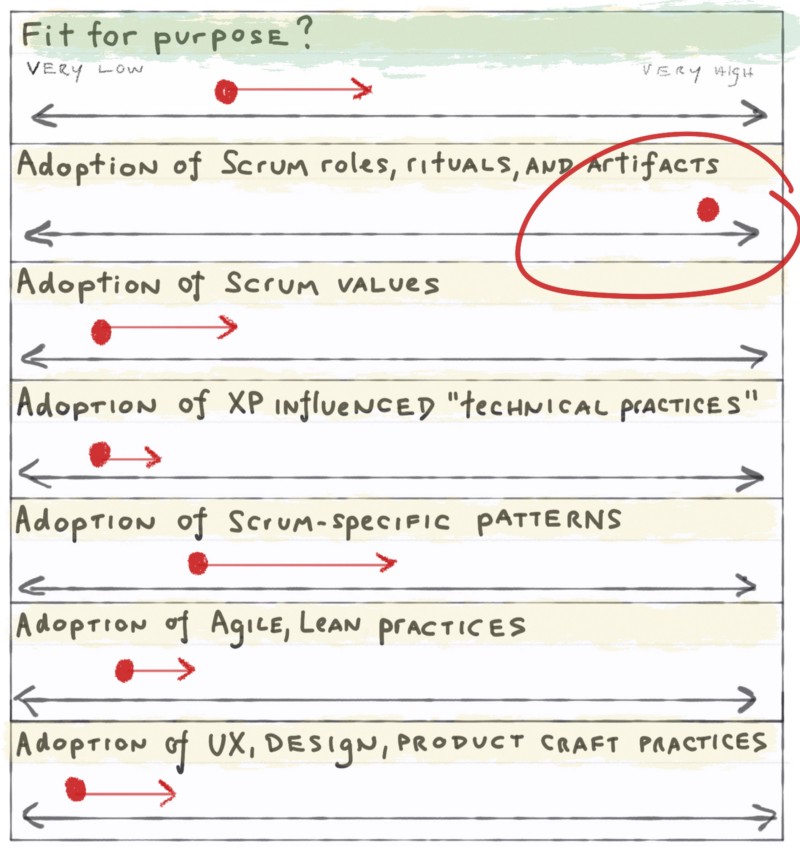 Fit for purpose?
VERY LOW VERY HIGH
Adoption of Scrum roles, rituals, and artifacts
Adoption of Scrum values
Adoption of XP influenced "technical practices"
Adoption of Scrum-specific patterns
Adoption of Agile, Lean practices
Adoption of UX, Design, Product craft practices